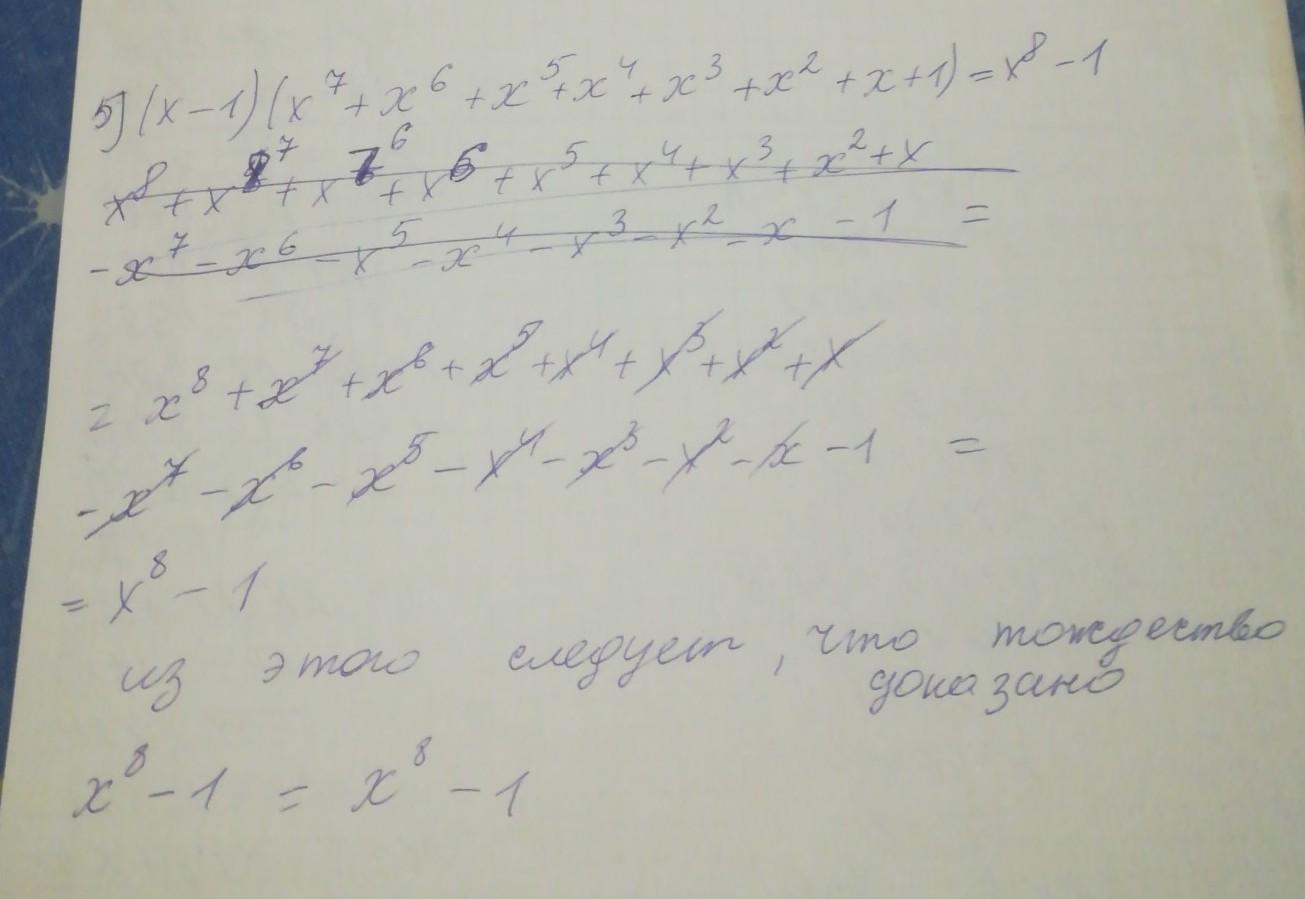 5) (x-1)(x⁷+x⁶+x⁵+x⁴+x³+x²+x+1)=x⁸-1
x⁸+x⁷+x⁶+x⁶+x⁵+x⁴+x³+x²+x
-x⁷-x⁶-x⁵-x⁴-x³-x²-x-1 =
= x⁸+x⁷+x⁶+x⁵+x⁴+x³+x²+x
-x⁷-x⁶-x⁵-x⁴-x³-x²-x-1 =
= x⁸-1
из этого следует, что тождество
доказано
x⁸-1 = x⁸-1